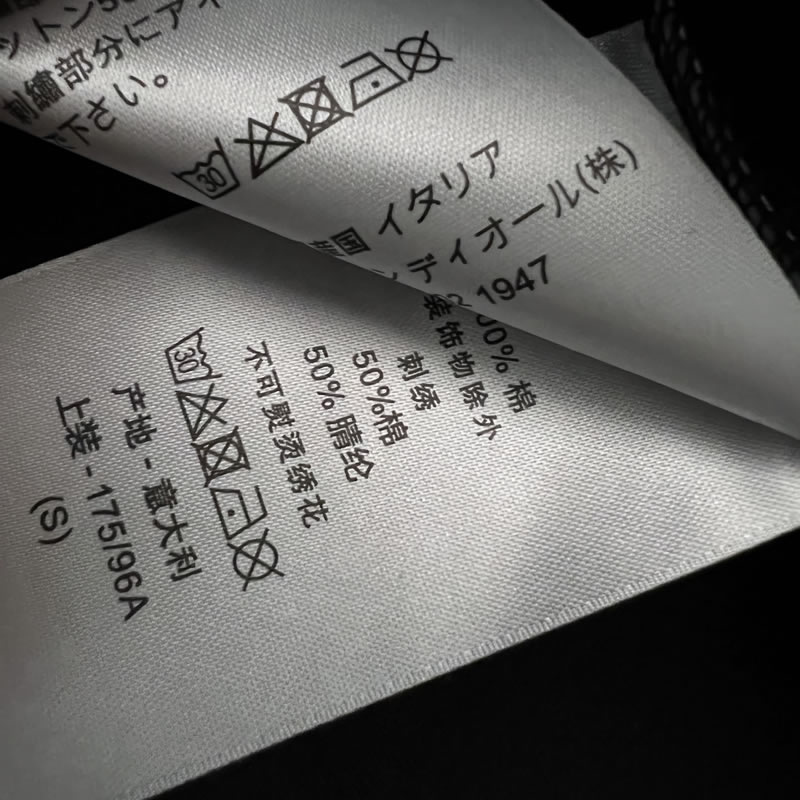 ットン50
刺繍部分にアイ
下さい。
30
国 イタリア
ディオール(株)
1947
00% 棉
装饰物除外
刺绣
50%棉
50% 腈纶
不可熨烫绣花
30
产地 - 意大利
上装 - 175/96A
(S)